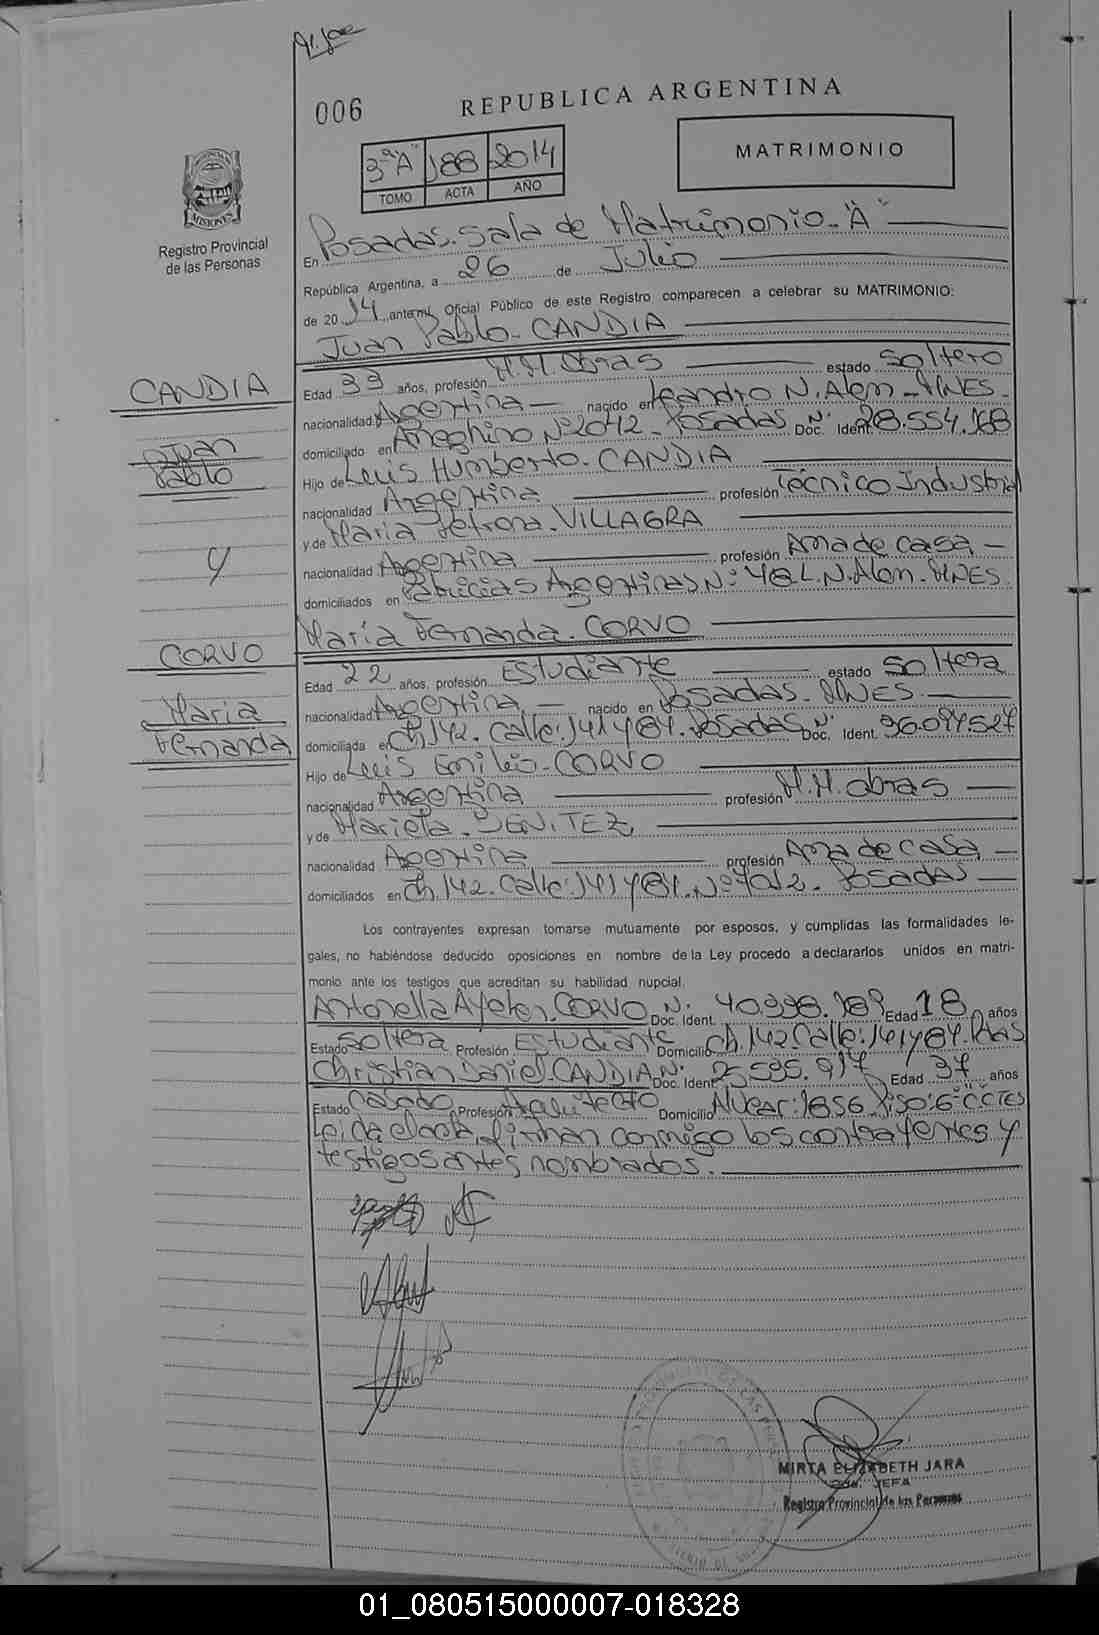 006
REPUBLICA ARGENTINA
3º "A" 188 2014
TOMO ACTA AÑO
MATRIMONIO
MISIONES
Registro Provincial
de las Personas
En Posadas. Sala de Matrimonio. "A"
República Argentina, a 26 de Julio
de 2014, ante mí, Oficial Público de este Registro comparecen a celebrar su MATRIMONIO:
Juan Pablo. CANDIA
CANDIA
Juan
Pablo
y
CORVO
Maria
Fernanda
Edad 33 años, profesión M.M. Obras estado Soltero
nacionalidad Argentina nacido en Leandro N. Alem. MNES.
domiciliado en Ameghino Nº 2042. Posadas Doc. Ident. Nº 28.554.168
Hijo de Luis Humberto. CANDIA
nacionalidad Argentina profesión Técnico Industrial
y de Maria Petrona. VILLAGRA
nacionalidad Argentina profesión Ama de casa
domiciliados en Patricias Argentinas Nº: 48 L.N. Alem. MNES.
María Fernanda. CORVO
Edad 22 años, profesión Estudiante estado Soltera
nacionalidad Argentina nacido en Posadas. MNES
domiciliada en Ch. 142. Calle: 141 y 84. Posadas Doc. Ident. Nº 36.094.527
Hijo de Luis Emilio. CORVO
nacionalidad Argentina profesión M.M. obras
y de Mariela. BENITEZ
nacionalidad Argentina profesión Ama de casa
domiciliados en Ch. 142. Calle: 141 y 84. Nº 7012. Posadas
Los contrayentes expresan tomarse mutuamente por esposos, y cumplidas las formalidades le-
gales, no habiéndose deducido oposiciones en nombre de la Ley procedo a declararlos unidos en matri-
monio ante los testigos que acreditan su habilidad nupcial.
Antonella Ayelen. CORVO Doc. Ident. Nº 40.998. Edad 18 años
Estado Soltera Profesión Estudiante Domicilio Ch. 142. Calle: 141 y 84. Pdas
Christian Daniel. CANDIA Doc. Ident. Nº 25.595.917 Edad 37 años
Estado Casado Profesión Arquitecto Domicilio Alvear: 1856 Piso: 6 "C" CTES
Leida el acta, firman conmigo los contrayentes y
testigos antes nombrados.
MIRTA ELIZABETH JARA
JEFA
Registro Provincial de las Personas
01_080515000007-018328